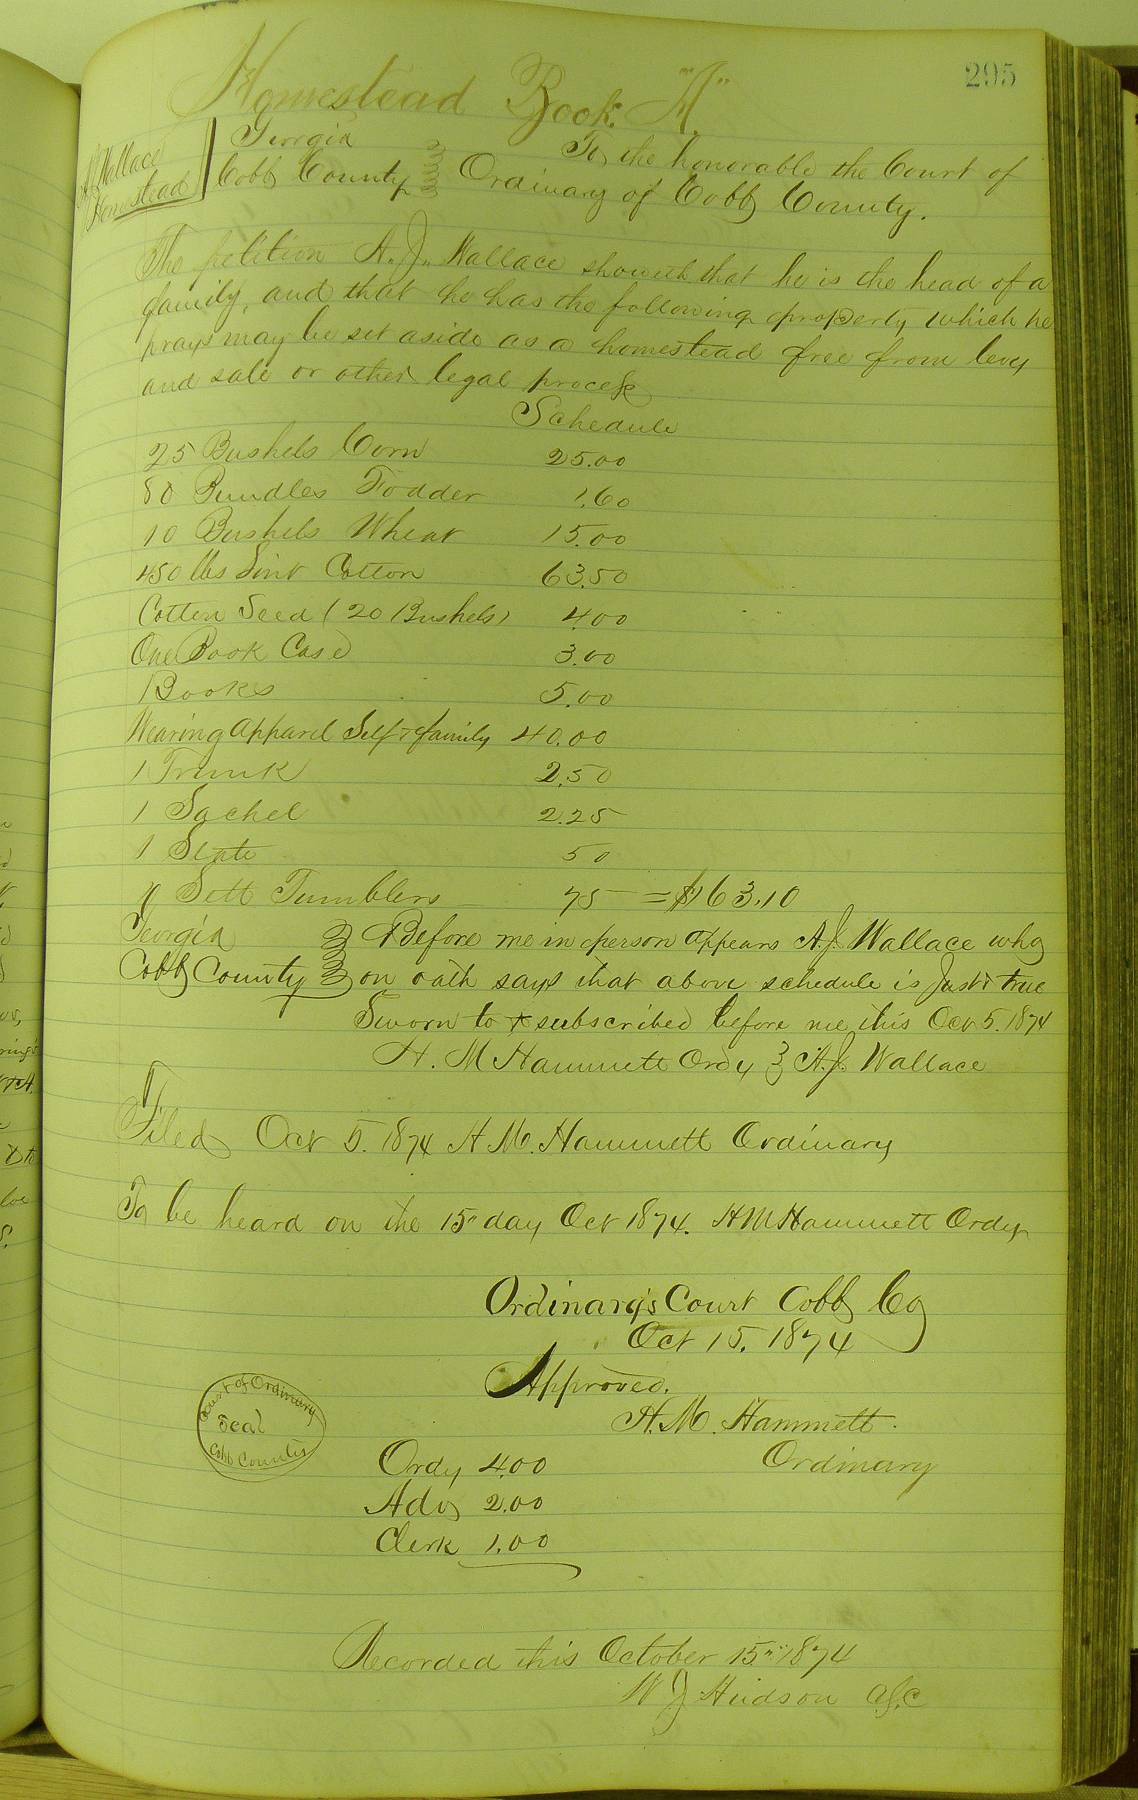 295
Homestead Book "A"
A J Wallace
Homestead
Georgia
Cobb County
To the honorable the Court of
Ordinary of Cobb County.
The petition A. J. Wallace showeth that he is the head of a
family, and that he has the following property which he
prays may be set aside as a homestead free from levy
and sale or other legal process
Schedule
25 Bushels Corn 25.00
80 Bundles Fodder 1.60
10 Bushels Wheat 15.00
450 lbs Lint Cotton 63.50
Cotton Seed (20 Bushels) 4.00
One Book Case 3.00
Books 5.00
Wearing Apparel Self & family 40.00
1 Trunk 2.50
1 Sachel 2.25
1 Slate 50
1 Sett Tumblers 75 = $163.10
Georgia
Cobb County
Before me in person appears A. J. Wallace who
on oath says that above schedule is Just & true
Sworn to & subscribed before me this Oct 5. 1874
H. M Hammett Ordy A. J. Wallace
Filed Oct 5. 1874 H. M. Hammett Ordinary
To be heard on the 15" day Oct 1874. H M Hammett Ordy
Ordinary's Court Cobb Co
Oct 15. 1874
Approved.
H. M. Hammett.
Ordinary
Court of Ordinary
Seal
Cobb County
Ordy 4.00
Adv 2.00
Clerk 1.00
Recorded this October 15" 1874
W J Hudson